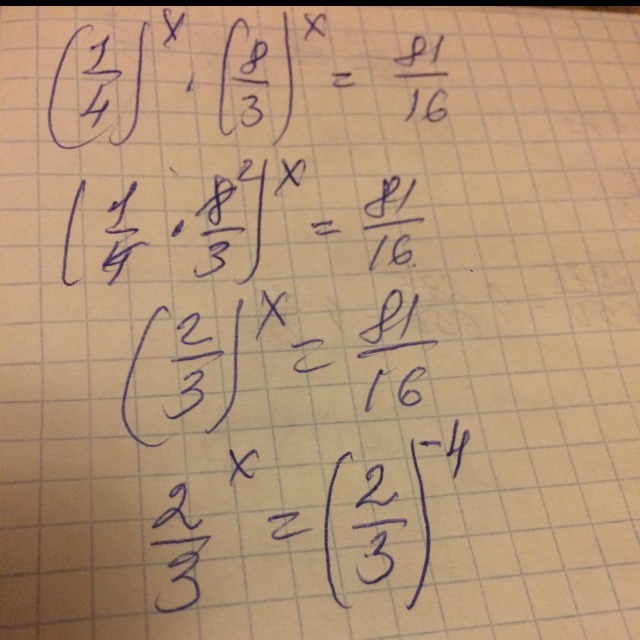 (1/4)^x · (8/3)^x = 81/16
(1/4 · 8/3)^x = 81/16
(2/3)^x = 81/16
2/3^x = (2/3)^-4